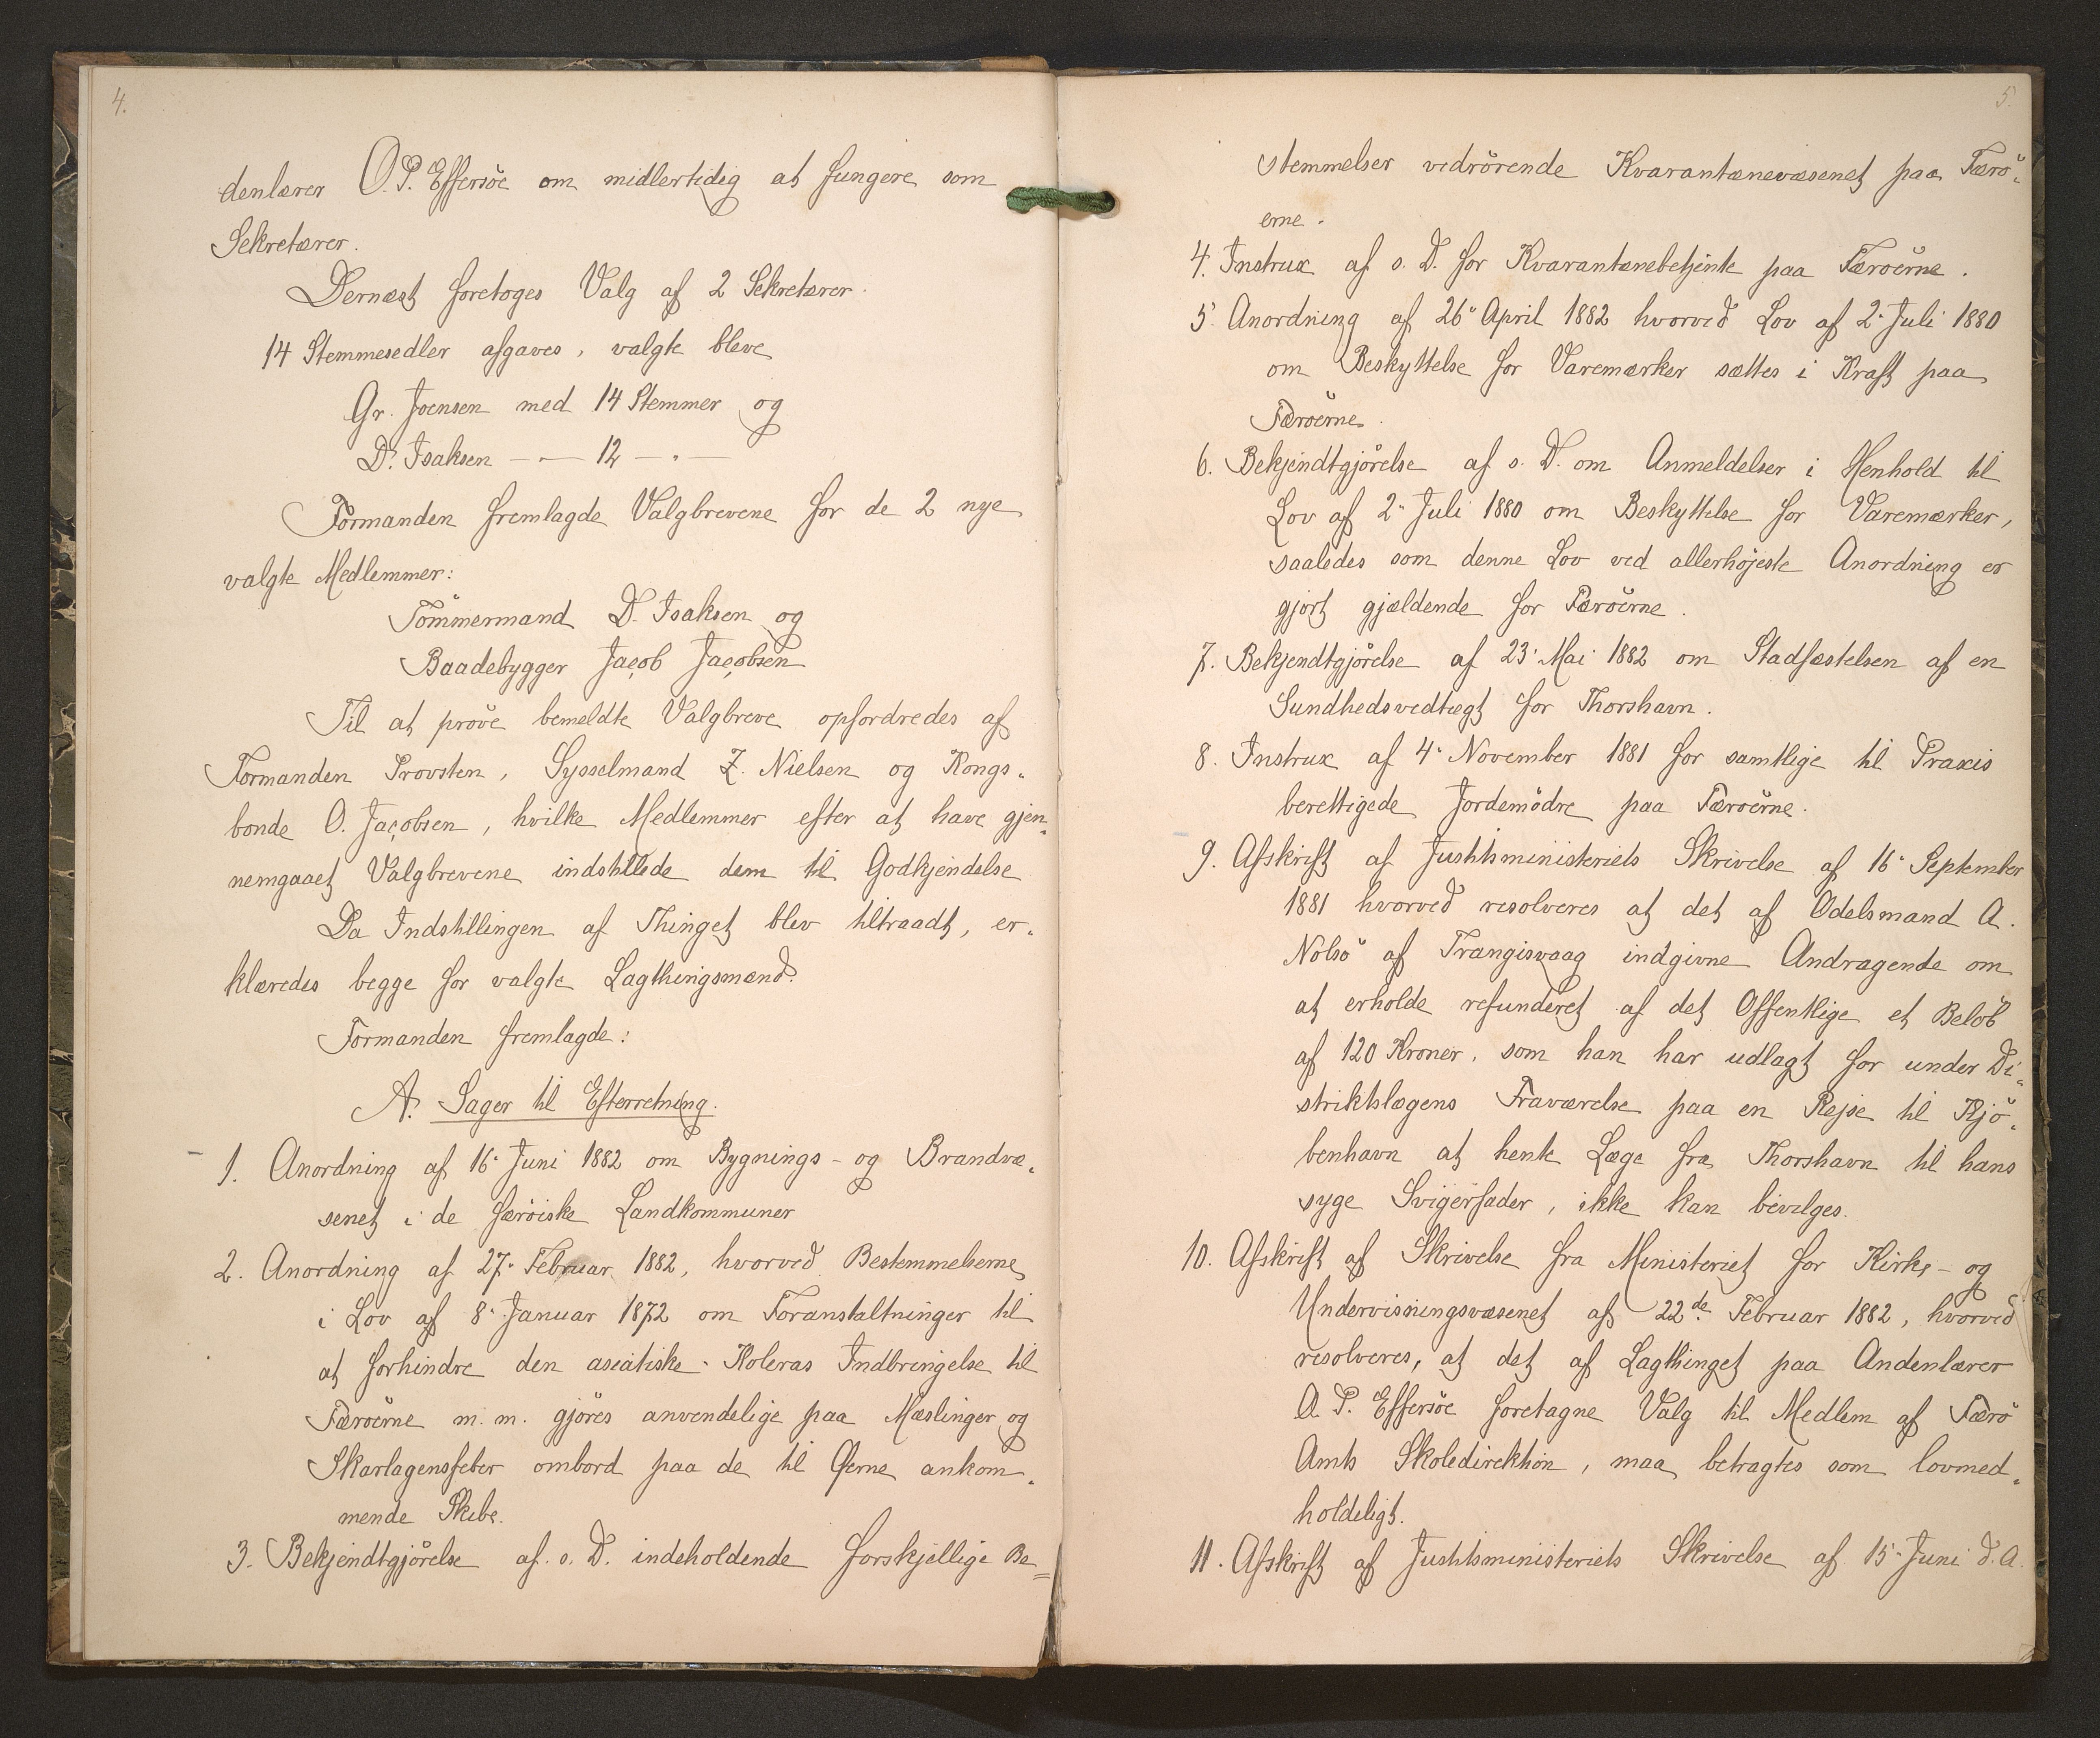 4.
denlærer O. P. Effersöe om midlertidig at fungere som
Sekretærer.
Dernæst foretoges Valg af 2 Sekretærer.
14 Stemmesedler afgaves, valgte bleve
Gr. Joensen med 14 Stemmer og
D. Isaksen — " — 12 — " —
Formanden fremlagde Valgbrevene for de 2 nye
valgte Medlemmer:
Tömmermand D. Isaksen og
Baadebygger Jacob Jacobsen
Til at pröve bemeldte Valgbreve opfordredes af
Formanden Provsten, Sysselmand Z. Nielsen og Kongs-
bonde O. Jacobsen, hvilke Medlemmer efter at have gjen-
nemgaaet Valgbrevene indstillede dem til Godkjendelse
Da Indstillingen af Thinget blev tiltraadt, er-
klæredes begge for valgte Lagthingsmænd.
Formanden fremlagde:
A. Sager til Efterretning.
1. Anordning af 16" Juni 1882 om Bygnings- og Brandvæ-
senet i de færöiske Landkommuner
2. Anordning af 27" Februar 1882, hvorved Bestemmelserne
i Lov af 8" Januar 1872 om Foranstaltninger til
at forhindre den asiatiske Koleras Indbringelse til
Færöerne m. m. gjöres anvendelige paa Mæslinger og
Skarlagensfeber ombord paa de til Øerne ankom-
mende Skibe.
3. Bekjendtgjörelse af s. D. indeholdende forskjellige Be=
5.
stemmelser vedrörende Kvarantænevæsenet paa Færö-
erne.
4. Instrux af s. D. for Kvarantænebetjente paa Færöerne.
5. Anordning af 26" April 1882 hvorved Lov af 2" Juli 1880
om Beskyttelse for Varemærker sættes i Kraft paa
Færöerne.
6. Bekjendtgjörelse af s. D. om Anmeldelser i Henhold til
Lov af 2" Juli 1880 om Beskyttelse for Varemærker,
saaledes som denne Lov ved allerhöjeste Anordning er
gjort gjældende for Færöerne.
7. Bekjendtgjörelse af 23" Mai 1882 om Stadfæstelsen af en
Sundhedsvedtægt for Thorshavn.
8. Instrux af 4" November 1881 for samtlige til Praxis
berettigede Jordemödre paa Færöerne.
9. Afskrift af Justitsministeriets Skrivelse af 16" September
1881 hvorved resolveres at det af Odelsmand A.
Nolsö af Trangisvaag indgivne Andragende om
at erholde refunderet af det Offentlige et Belöb
af 120 Kroner, som han har udlagt for under Di-
striktslægens Fraværelse paa en Rejse til Kjö-
benhavn at hente Læge fra Thorshavn til hans
syge Svigerfader, ikke kan bevilges.
10. Afskrift af Skrivelse fra Ministeriet for Kirke- og
Undervisningsvæsenet af 22de Februar 1882, hvorved
resolveres, at det af Lagthinget paa Andenlærer
O. P. Effersöe foretagne Valg til Medlem af Færö
Amts Skoledirektion, maa betragtes som lovmed-
holdeligt.
11. Afskrift af Justitsministeriets Skrivelse af 15" Juni d. A.